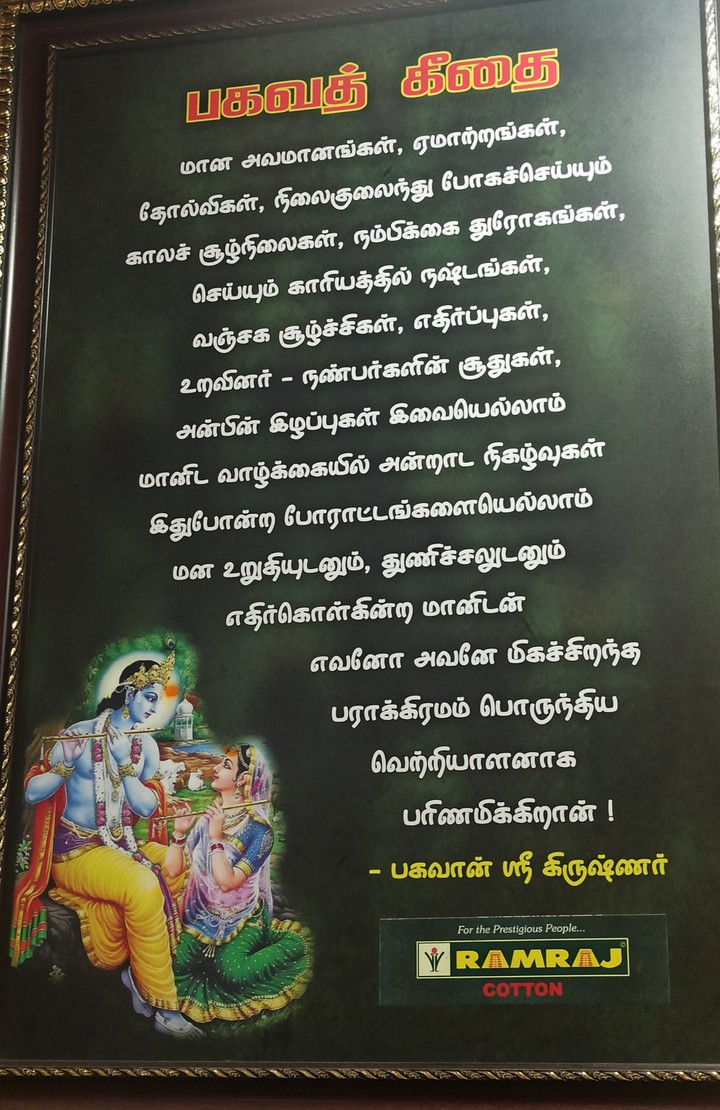 பகவத் கீதை
மான அவமானங்கள், ஏமாற்றங்கள்,
தோல்விகள், நிலைகுலைந்து போகச்செய்யும்
காலச் சூழ்நிலைகள், நம்பிக்கை துரோகங்கள்,
செய்யும் காரியத்தில் நஷ்டங்கள்,
வஞ்சக சூழ்ச்சிகள், எதிர்ப்புகள்,
உறவினர் – நண்பர்களின் சூதுகள்,
அன்பின் இழப்புகள் இவையெல்லாம்
மானிட வாழ்க்கையில் அன்றாட நிகழ்வுகள்
இதுபோன்ற போராட்டங்களையெல்லாம்
மன உறுதியுடனும், துணிச்சலுடனும்
எதிர்கொள்கின்ற மானிடன்
எவனோ அவனே மிகச்சிறந்த
பராக்கிரமம் பொருந்திய
வெற்றியாளனாக
பரிணமிக்கிறான் !
– பகவான் ஸ்ரீ கிருஷ்ணர்
For the Prestigious People...
RAMRAJ ©
COTTON